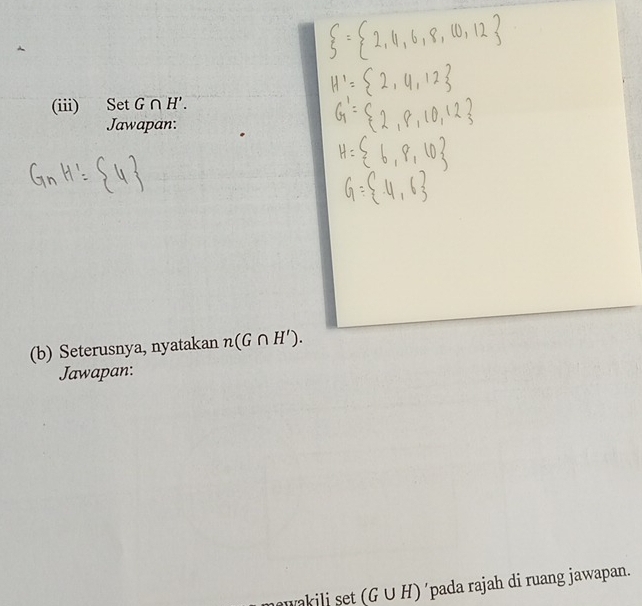 (iii) Set G ∩ H'.
Jawapan:
G ∩ H' = {4}
ξ = {2, 4, 6, 8, 10, 12}
H' = {2, 4, 12}
G' = {2, 8, 10, 12}
H = {6, 8, 10}
G = {4, 6}
(b) Seterusnya, nyatakan n(G ∩ H').
Jawapan:
set (G ∪ H)' pada rajah di ruang jawapan.